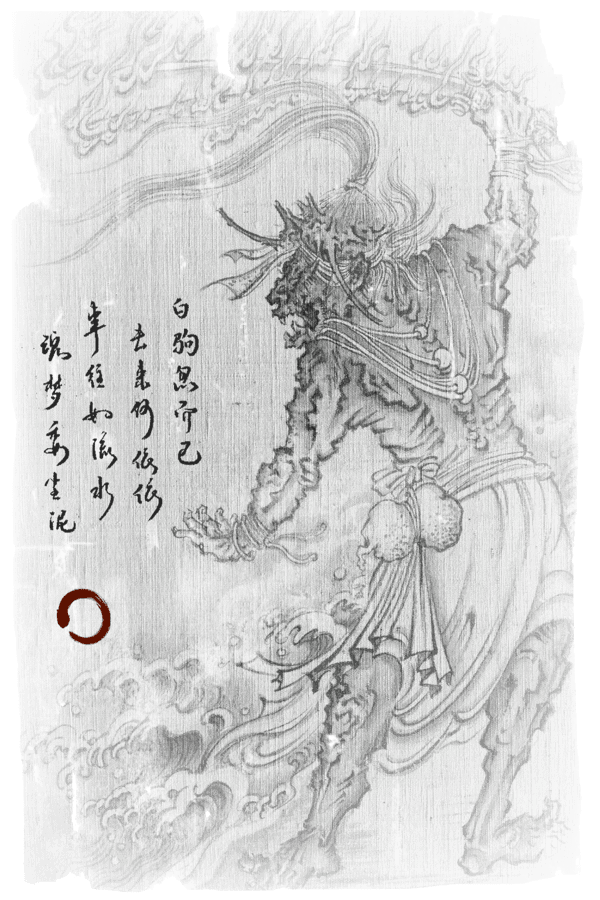 白驹忽而已
去来何依依
如流水
魂梦委尘泥